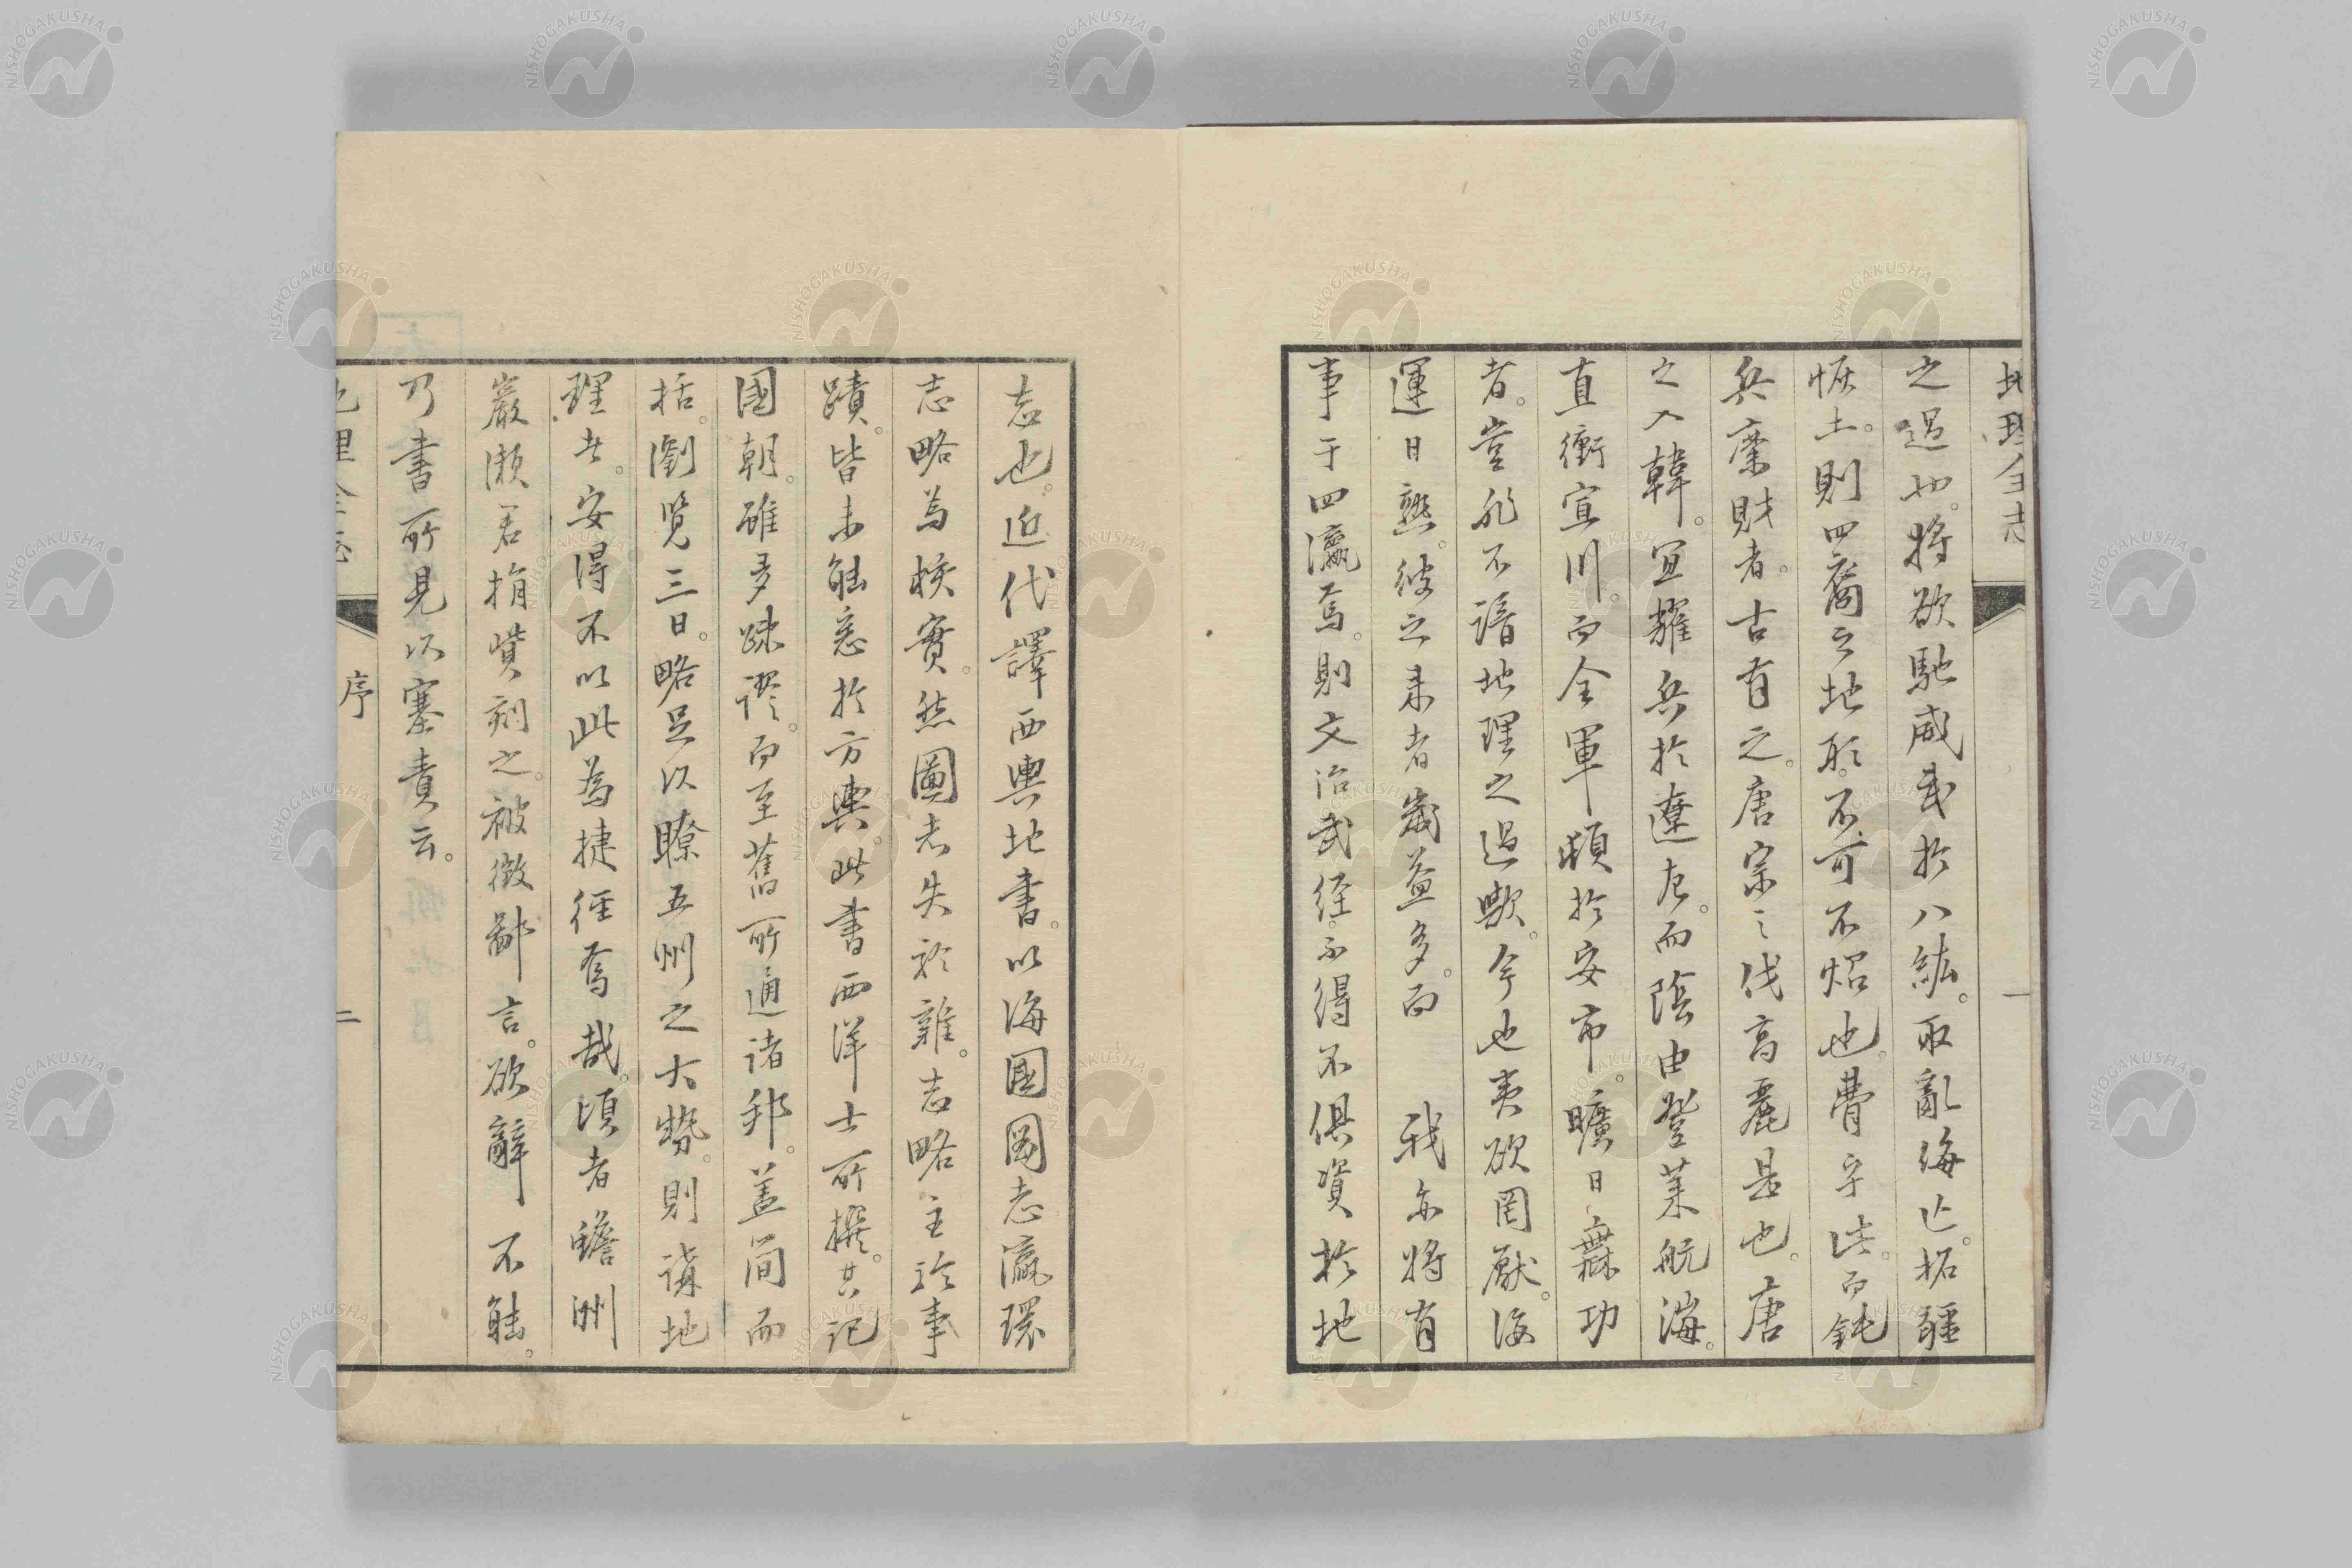 地理全志
一
之過也。將欲馳威武於八紘。取亂侮亡。拓疆
恢土。則四裔之地形。不可不炤也。費字此。而鈍
兵糜財者。古有之。唐宗之伐高麗是也。唐
之入韓。宜耀兵於遼左。而陰由登萊航海。
直衝宣川。而全軍頓於安市。曠日無功
者。豈非不諳地理之過歟。今也夷欲罔厭。海
運日熟。彼之来者歲益多。而 我亦將有
事于四瀛焉。則文治武経。不得不俱資於地
志也。近代譯西輿地書。以海國圖志瀛環
志略為核實。然圖志失於雜。志略主於事
蹟。皆未能悉於方輿。此書西洋士所撰。其記
國朝。雖多疎謬。而至舊所通諸邦。蓋簡而
括。瀏覽三日。略足以瞭五州之大勢。則講地
理者。安得不以此為捷徑焉哉。頃者蟾洲
巖瀬君捐貲刻之。被徵鄙言。欲辭不能。
乃書所見以塞責云。
地理全志
序
二